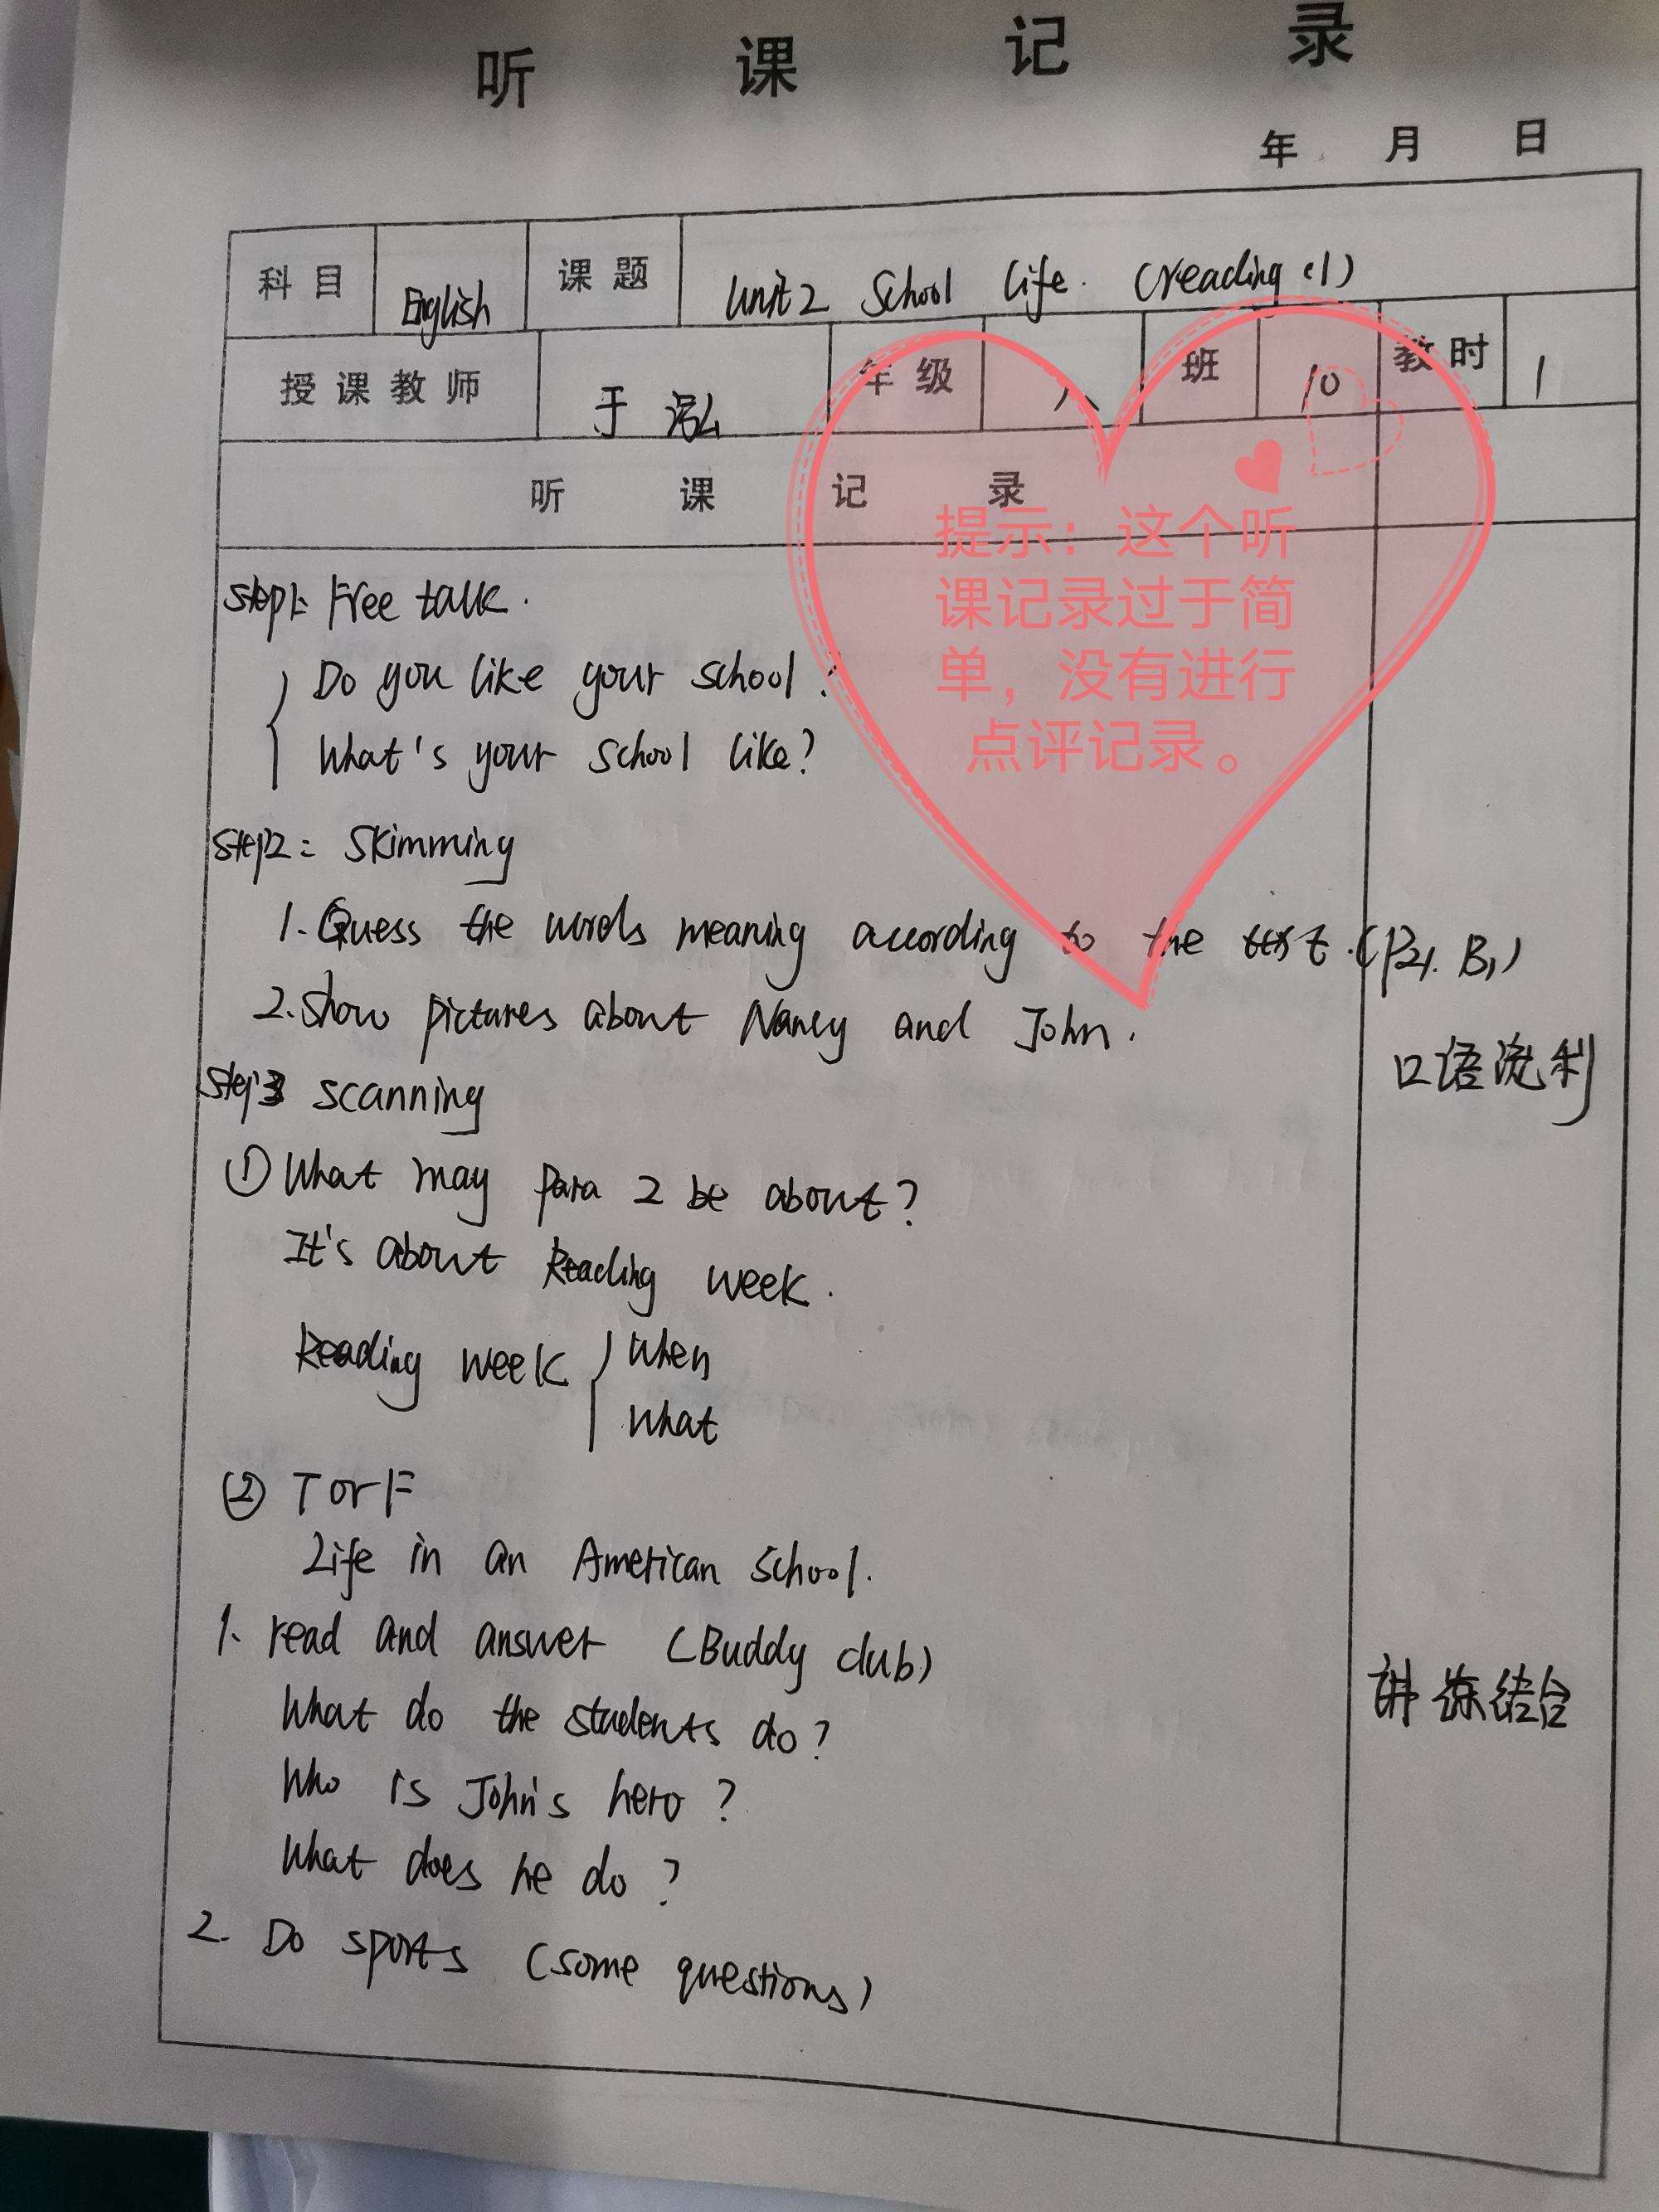 听 课 记 录
年 月 日
科 目 English 课 题 Unit2 School life. (reading (1)
授 课 教 师 于 泓 年 级 八 班 10 教 时 1
听 课 记 录
提示：这个听
课记录过于简
单，没有进行
点评记录。
step1: Free talk.
Do you like your school?
What's your school like?
step2: Skimming
1. Guess the words meaning according to the text. (P21. B1)
2. Show pictures about Nancy and John.
口语流利
step3 scanning
① What may para 2 be about?
It's about Reading week.
Reading week when
what
② T or F
Life in an American school.
1. read and answer (Buddy club)
讲练结合
What do the students do?
Who is John's hero?
What does he do?
2. Do sports (some questions)